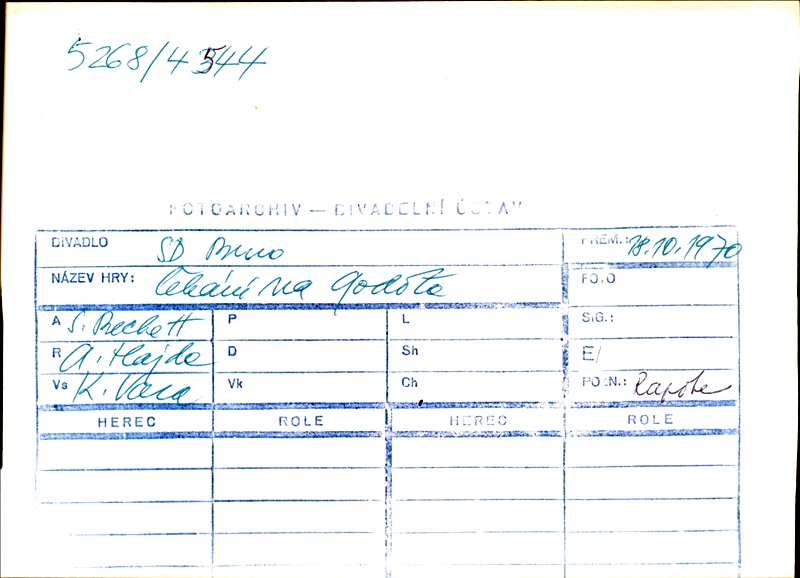 5268/4544
FOTOARCHIV — DIVADELNÍ ÚSTAV
DIVADLO SD Brno PREM.: 18.10.1970
NÁZEV HRY: Čekání na Godota FOTO
A S. Beckett P L SIG.:
R A. Hajda D Sh E/
Vs K. Vaca Vk Ch POZN.:
HEREC ROLE HEREC ROLE